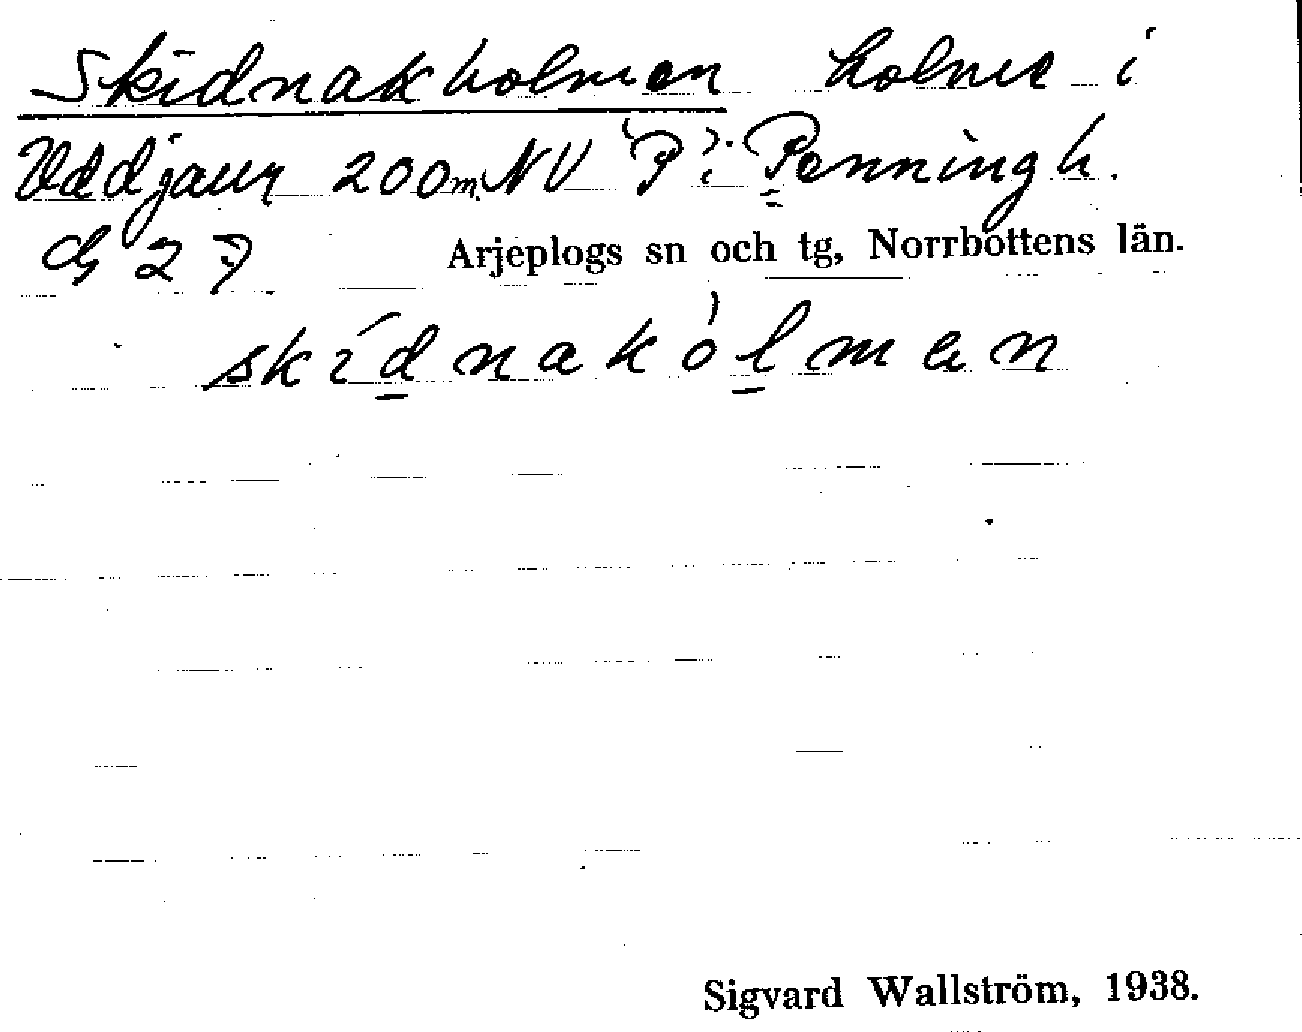 Skidnakholmen holme i
Uddjaur 200m NV "P": Penningh.
27 Arjeplogs sn och tg, Norrbottens län.
skídnakòlmen
Sigvard Wallström, 1938.